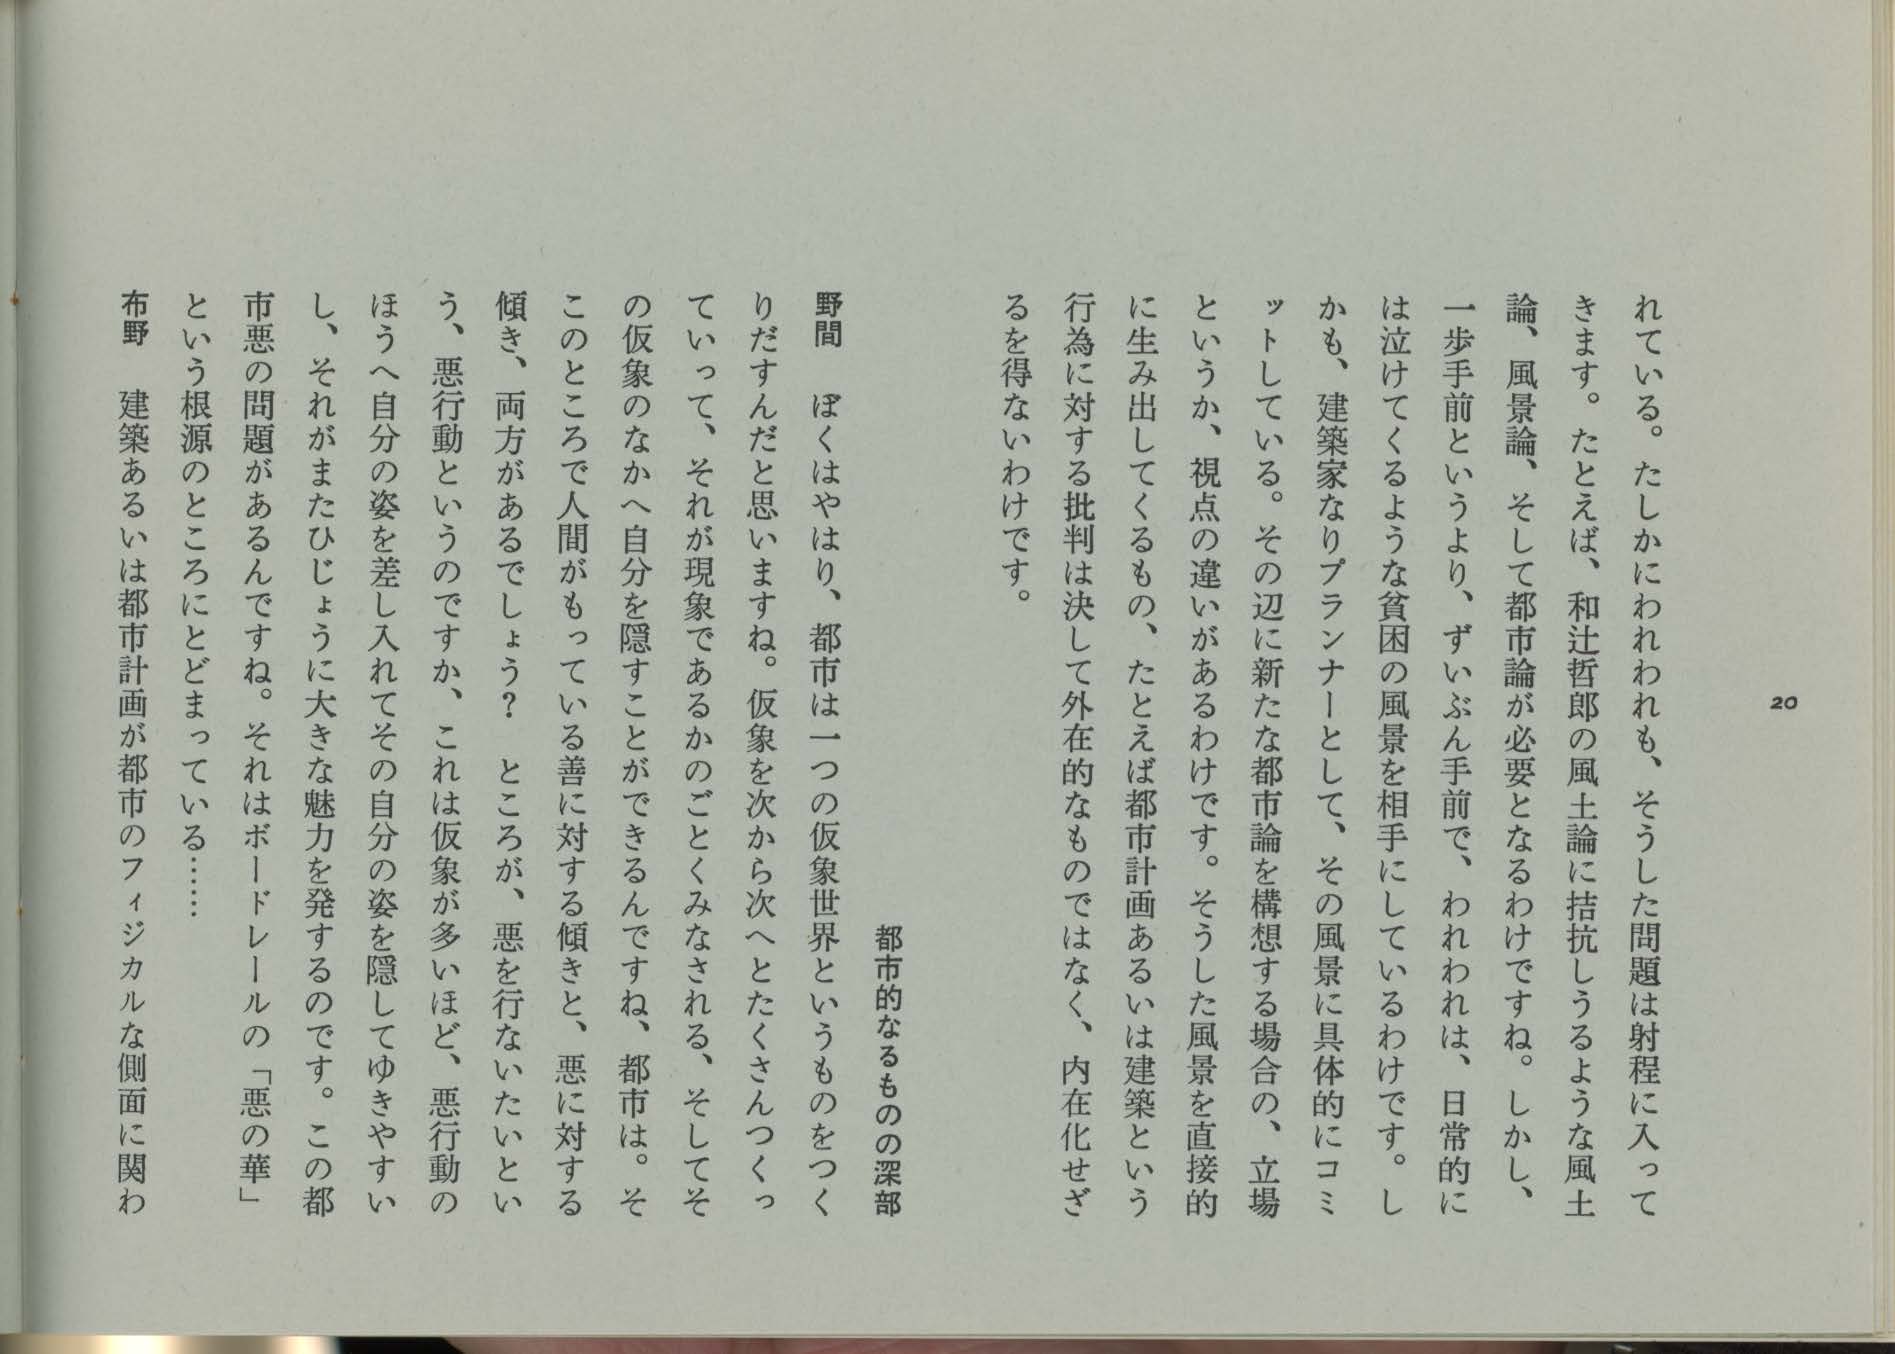 20
れている。たしかにわれわれも、そうした問題は射程に入って
きます。たとえば、和辻哲郎の風土論に拮抗しうるような風土
論、風景論、そして都市論が必要となるわけですね。しかし、
一歩手前というより、ずいぶん手前で、われわれは、日常的に
は泣けてくるような貧困の風景を相手にしているわけです。し
かも、建築家なりプランナーとして、その風景に具体的にコミ
ットしている。その辺に新たな都市論を構想する場合の、立場
というか、視点の違いがあるわけです。そうした風景を直接的
に生み出してくるもの、たとえば都市計画あるいは建築という
行為に対する批判は決して外在的なものではなく、内在化せざ
るを得ないわけです。
都市的なるものの深部
野間　ぼくはやはり、都市は一つの仮象世界というものをつく
りだすんだと思いますね。仮象を次から次へとたくさんつくっ
ていって、それが現象であるかのごとくみなされる、そしてそ
の仮象のなかへ自分を隠すことができるんですね、都市は。そ
このところで人間がもっている善に対する傾きと、悪に対する
傾き、両方があるでしょう？　ところが、悪を行ないたいとい
う、悪行動というのですか、これは仮象が多いほど、悪行動の
ほうへ自分の姿を差し入れてその自分の姿を隠してゆきやすい
し、それがまたひじょうに大きな魅力を発するのです。この都
市悪の問題があるんですね。それはボードレールの「悪の華」
という根源のところにとどまっている……
布野　建築あるいは都市計画が都市のフィジカルな側面に関わ